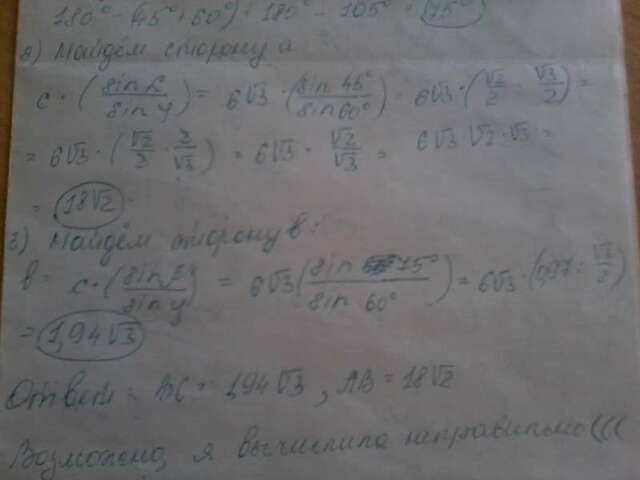 180° - (45° + 60°) = 180° - 105° = 75°
2) Найдём сторону a
c · (sin α / sin γ) = 6√3 · (sin 45° / sin 60°) = 6√3 · (√2/2 : √3/2) =
= 6√3 · (√2/2 · 2/√3) = 6√3 · √2/√3 = 6√3 √2 · √3 =
= 18√2
3) Найдём сторону b:
b = c · (sin β / sin γ) = 6√3 (sin 75° / sin 60°) = 6√3 · (0,97 : √3/2)
= 1,94√3
Ответ: BC = 1,94√3, AB = 18√2
Возможно, я вычислила неправильно(((